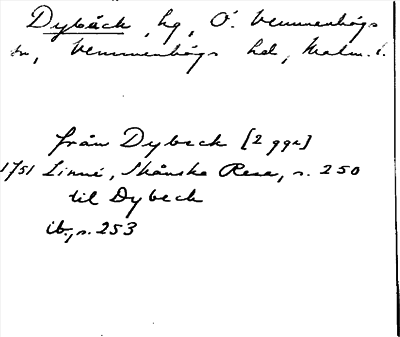 Dybäck, hg, Ö. Vemmenhögs
sn, Vemmenhögs hd, Malm. l.
från Dybeck [2 ggr]
1751 Linné, Skånska Resa, s. 250
til Dybeck
ib., s. 253